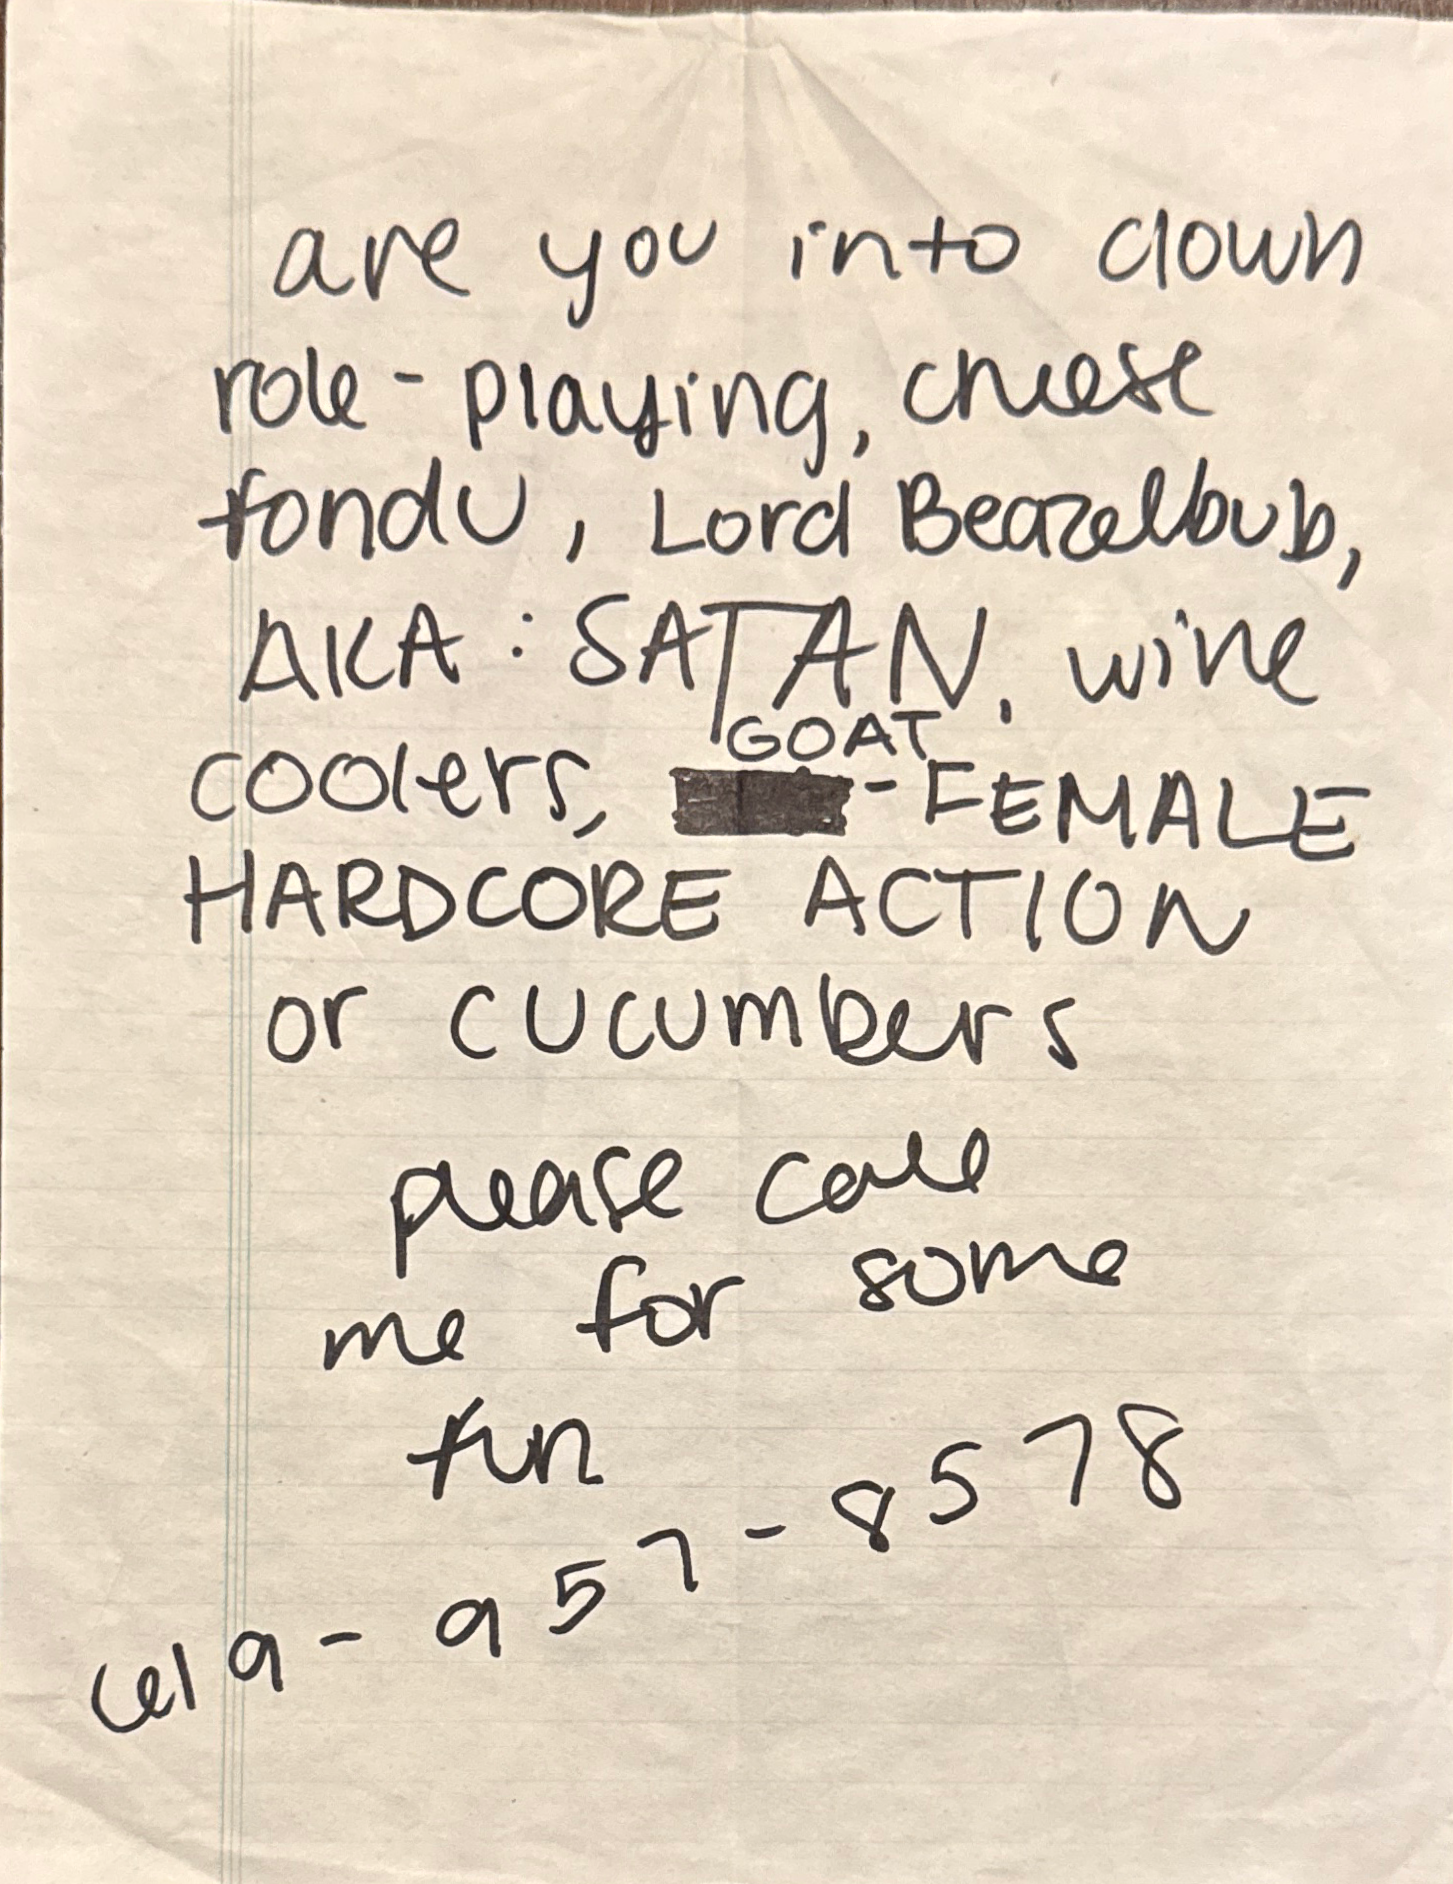 are you into clown
role-playing, cheese
fondu, Lord Beazellbub,
AKA: SATAN, wine
GOAT
coolers, -FEMALE
HARDCORE ACTION
or cucumbers
please call
me for some
fun
619-957-8578